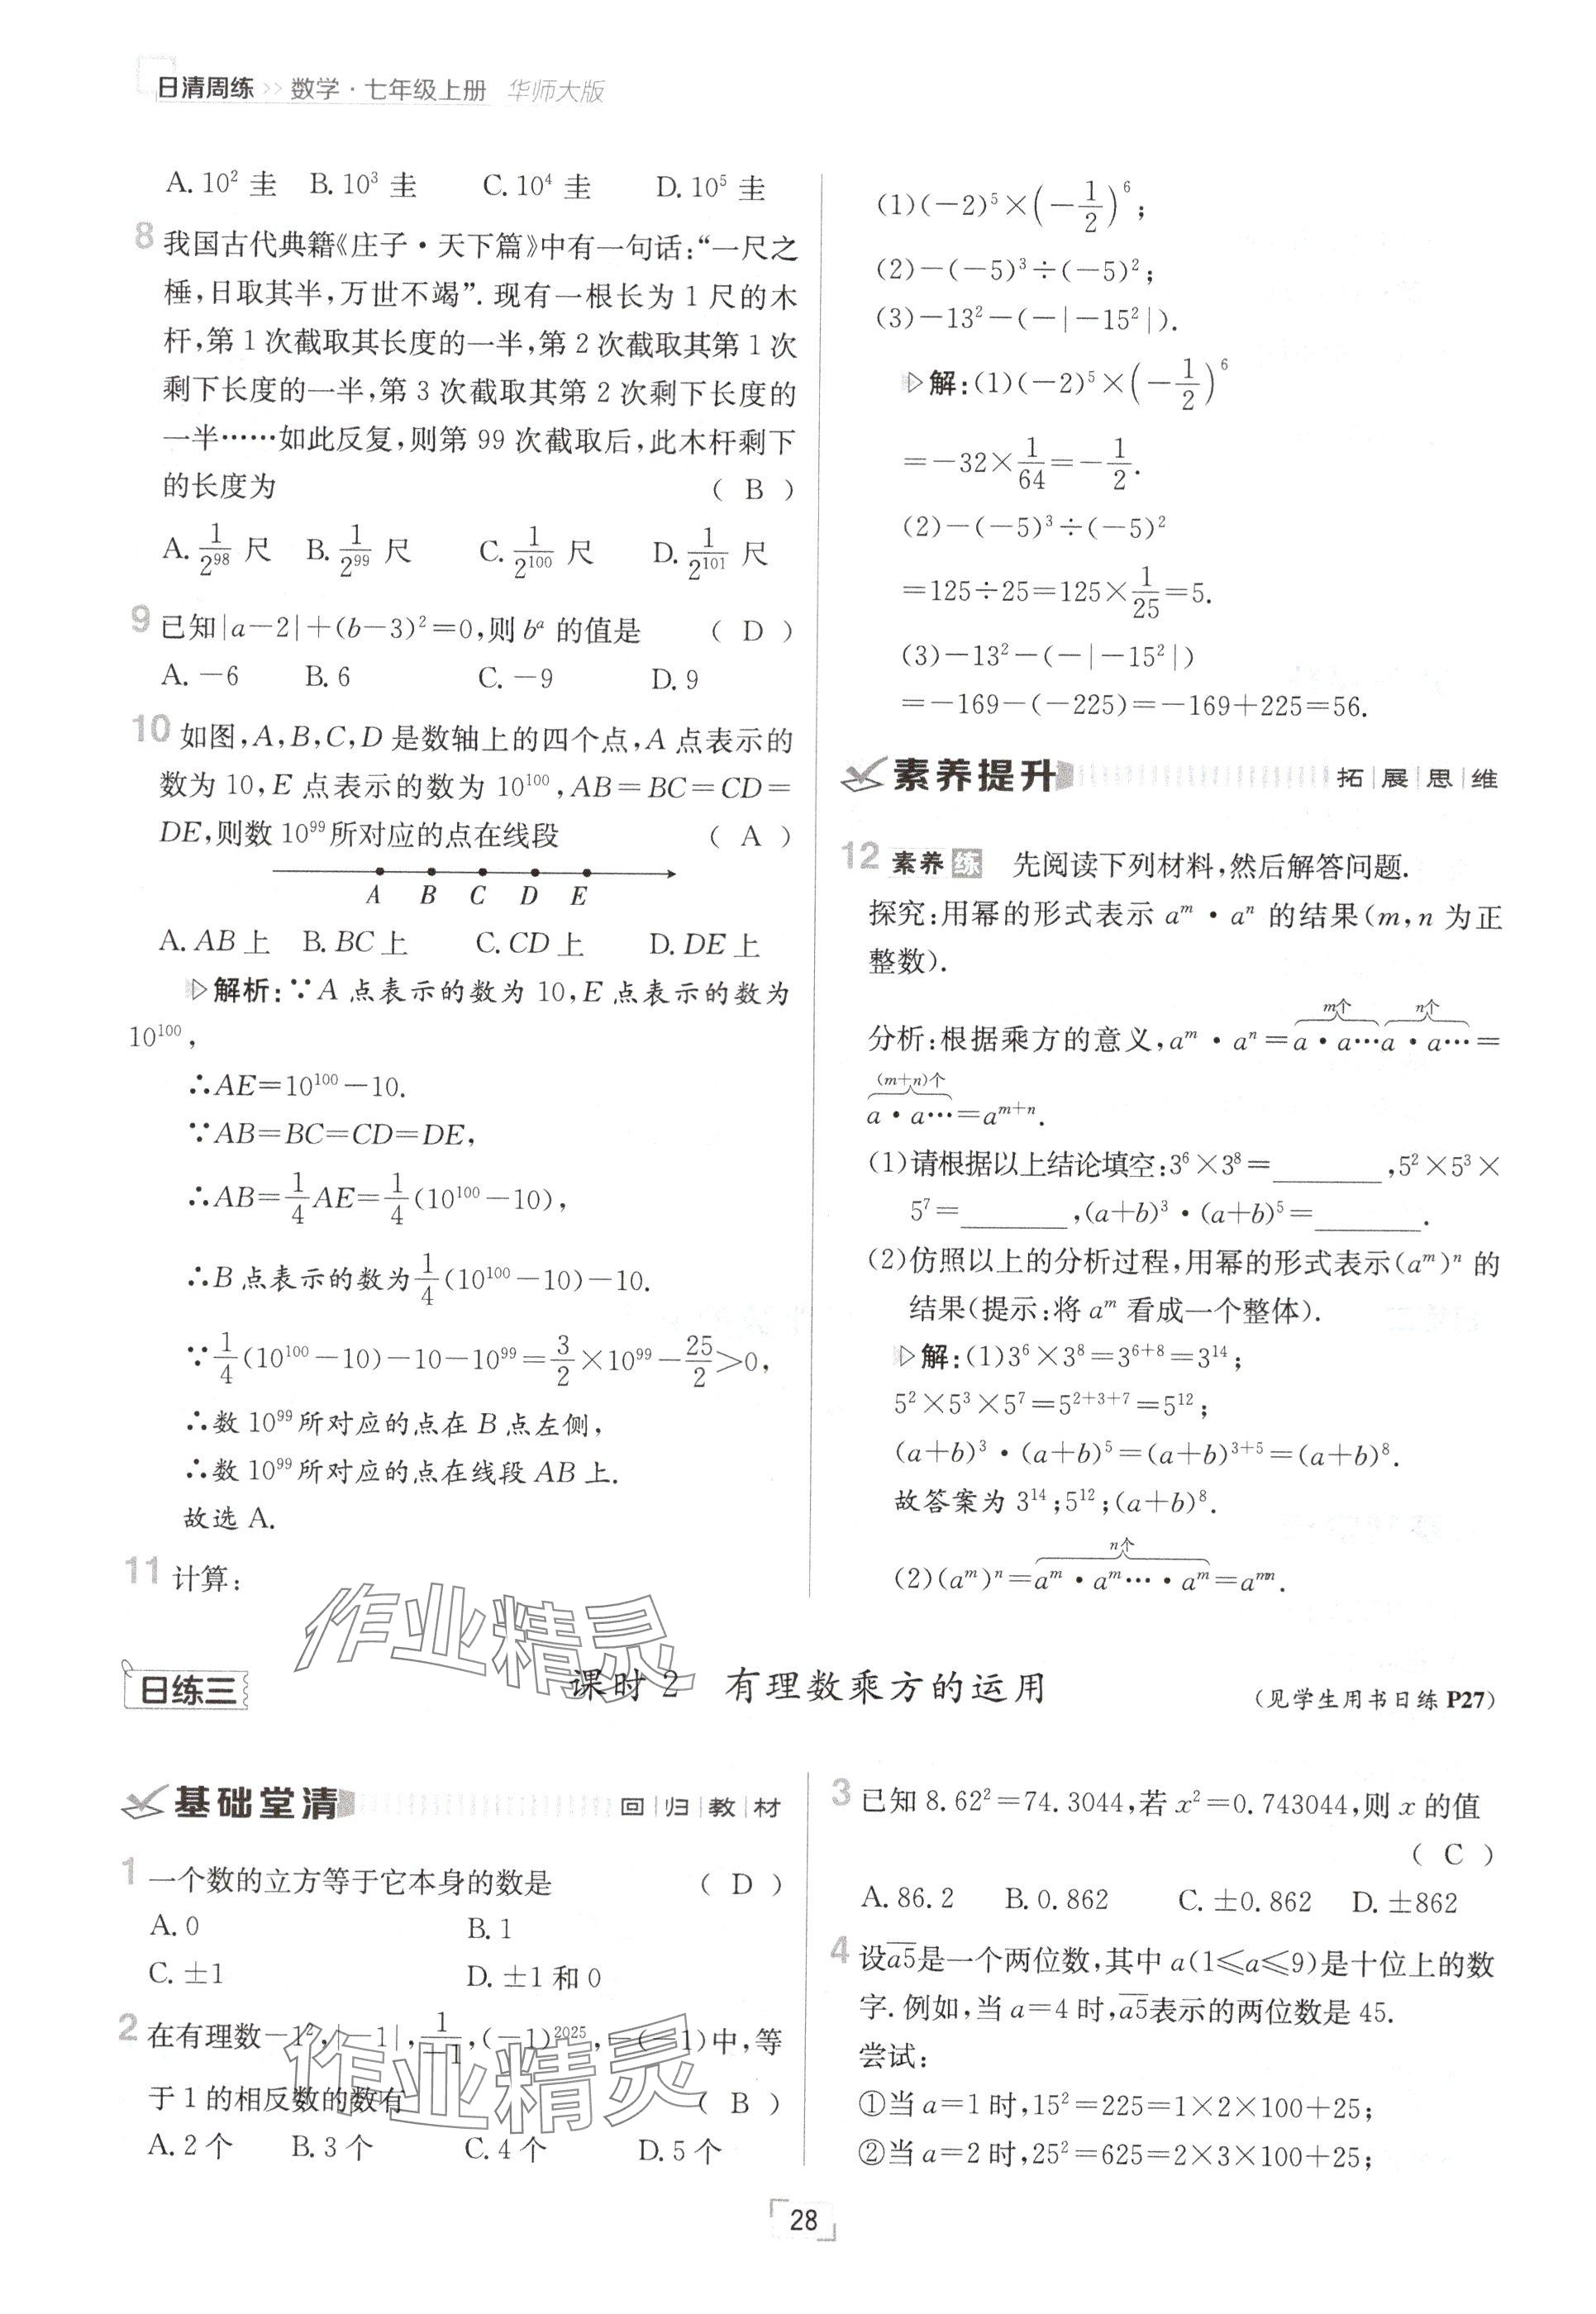 日清周练 >> 数学·七年级上册 华师大版
A. 10² 圭 B. 10³ 圭 C. 10⁴ 圭 D. 10⁵ 圭
8 我国古代典籍《庄子·天下篇》中有一句话:“一尺之
棰,日取其半,万世不竭”. 现有一根长为 1 尺的木
杆,第 1 次截取其长度的一半,第 2 次截取其第 1 次
剩下长度的一半,第 3 次截取其第 2 次剩下长度的
一半……如此反复,则第 99 次截取后,此木杆剩下
的长度为 ( B )
A. 1/2⁹⁸ 尺 B. 1/2⁹⁹ 尺 C. 1/2¹⁰⁰ 尺 D. 1/2¹⁰¹ 尺
9 已知|a−2|+(b−3)²=0,则 bᵃ 的值是 ( D )
A. −6 B. 6 C. −9 D. 9
10 如图,A,B,C,D 是数轴上的四个点,A 点表示的
数为 10,E 点表示的数为 10¹⁰⁰,AB=BC=CD=
DE,则数 10⁹⁹ 所对应的点在线段 ( A )
A B C D E
A. AB 上 B. BC 上 C. CD 上 D. DE 上
▷解析:∵A 点表示的数为 10,E 点表示的数为
10¹⁰⁰,
∴AE=10¹⁰⁰−10.
∵AB=BC=CD=DE,
∴AB=1/4 AE=1/4(10¹⁰⁰−10),
∴B 点表示的数为 1/4(10¹⁰⁰−10)−10.
∵1/4(10¹⁰⁰−10)−10−10⁹⁹=3/2×10⁹⁹−25/2>0,
∴数 10⁹⁹ 所对应的点在 B 点左侧,
∴数 10⁹⁹ 所对应的点在线段 AB 上.
故选 A.
11 计算:
(1)(−2)⁵×(−1/2)⁶;
(2)−(−5)³÷(−5)²;
(3)−13²−(−|−15²|).
▷解:(1)(−2)⁵×(−1/2)⁶
=−32×1/64=−1/2.
(2)−(−5)³÷(−5)²
=125÷25=125×1/25=5.
(3)−13²−(−|−15²|)
=−169−(−225)=−169+225=56.
素养提升 拓|展|思|维
12 素养 练 先阅读下列材料,然后解答问题.
探究:用幂的形式表示 aᵐ·aⁿ 的结果(m,n 为正
整数).
m个 n个
分析:根据乘方的意义,aᵐ·aⁿ=a·a…a·a…=
(m+n)个
a·a…=aᵐ⁺ⁿ.
(1)请根据以上结论填空:3⁶×3⁸=________,5²×5³×
5⁷=________,(a+b)³·(a+b)⁵=________.
(2)仿照以上的分析过程,用幂的形式表示(aᵐ)ⁿ 的
结果(提示:将 aᵐ 看成一个整体).
▷解:(1)3⁶×3⁸=3⁶⁺⁸=3¹⁴;
5²×5³×5⁷=5²⁺³⁺⁷=5¹²;
(a+b)³·(a+b)⁵=(a+b)³⁺⁵=(a+b)⁸.
故答案为 3¹⁴;5¹²;(a+b)⁸.
n个
(2)(aᵐ)ⁿ=aᵐ·aᵐ…·aᵐ=aᵐⁿ.
作业精灵
日练三 课时 2 有理数乘方的运用 (见学生用书日练 P27)
基础堂清 回|归|教|材
1 一个数的立方等于它本身的数是 ( D )
A. 0 B. 1
C. ±1 D. ±1 和 0
2 在有理数−1²,|−1|,1/−1,(−1)²⁰²⁵,−(−1)中,等
于 1 的相反数的数有 ( B )
A. 2 个 B. 3 个 C. 4 个 D. 5 个
作业精灵
3 已知 8.62²=74.3044,若 x²=0.743044,则 x 的值
( C )
A. 86.2 B. 0.862 C. ±0.862 D. ±862
4 设a5是一个两位数,其中 a(1⩽a⩽9)是十位上的数
字. 例如,当 a=4 时,a5表示的两位数是 45.
尝试:
①当 a=1 时,15²=225=1×2×100+25;
②当 a=2 时,25²=625=2×3×100+25;
28